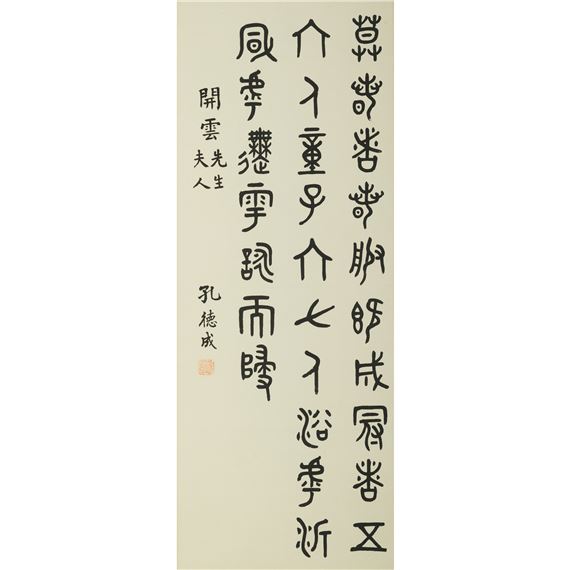 莫春者春服既成冠者五
六人童子六七人浴乎沂
風乎舞雩詠而歸
開雲先生夫人 孔德成